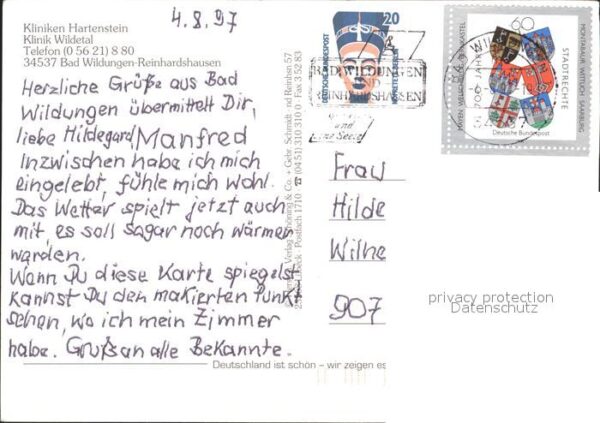 Kliniken Hartenstein
Klinik Wildetal
Telefon (0 56 21) 8 80
34537 Bad Wildungen-Reinhardshausen
4.8.97
Herzliche Grüße aus Bad
Wildungen übermittelt Dir,
liebe Hildegard, Manfred
Inzwischen habe ich mich
eingelebt, fühle mich wohl.
Das Wetter spielt jetzt auch
mit, es soll sogar noch wärmer
werden.
Wenn Du diese Karte spiegelst
kannst Du den makierten Punkt
sehen, wo ich mein Zimmer
habe. Gruß an alle Bekannte.
Deutschland ist schön – wir zeigen es
Verlag Schöning & Co. + Gebr. Schmidt
Postfach 1710 ☎ (04 51) 310 310
DEUTSCHE BUNDESPOST
20
NOFRETETE BERLIN
BAD WILDUNGEN
REINHARDSHAUSEN
und
60
STADTRECHTE
MONTABAUR WITTLICH SAARBURG
MAYEN WELSCHBILLIG
Deutsche Bundespost
Frau
Hilde
Wilhe
907
privacy protection
Datenschutz